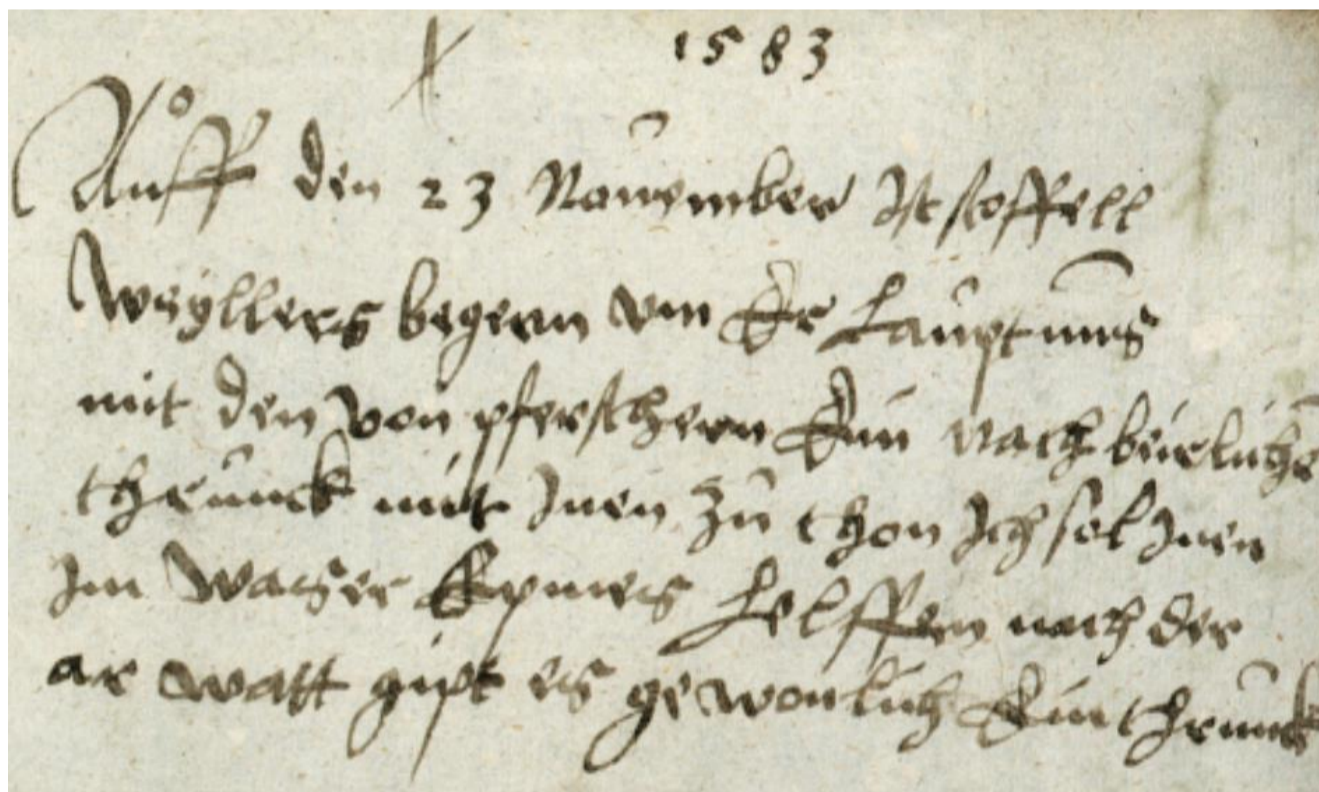 1583
Auff den 23 Nouember Ist stoffell
Weyllers begern von Er hauptmans
mit den von pferschenn Ein nachbeürlichen
thrunck mit Inen zu thon Ich sol Inen
Im waser helffen nach der
ar watt gipt es gewonlich Ein thrunck